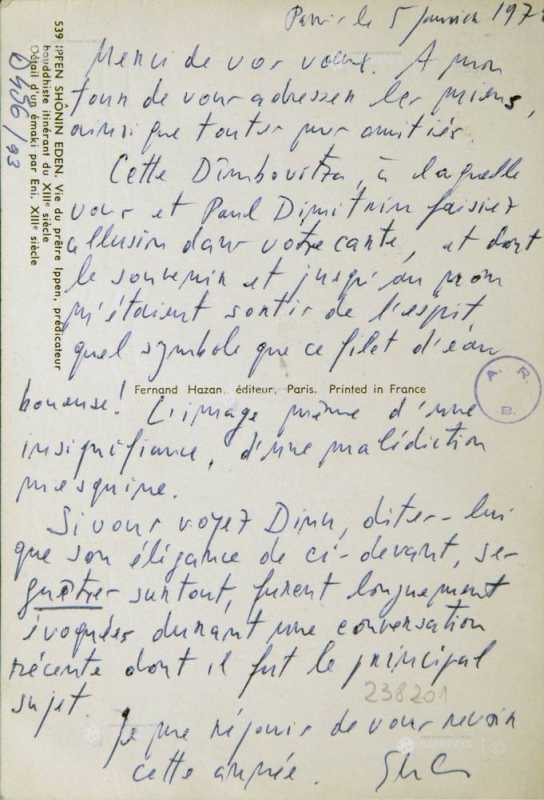 Paris le 5 janvier 197
Merci de vos vœux. A mon
tour de vous adresser les miens,
ainsi que toutes mes amitiés.
Cette Dîmbovitza, à laquelle
vous et Paul Dimitriu faisiez
allusion dans votre carte, et dont
le souvenir et jusqu'au nom
m'étaient sortis de l'esprit
quel symbole que ce filet d'eau
boueuse! L'image même d'une
insignifiance, d'une malédiction
mesquine.
Si vous voyez Dinu, dites-lui
que son élégance de ci-devant, ses
guêtres surtout, furent longuement
évoquées durant une conversation
récente dont il fut le principal
sujet.
Je me réjouis de vous revoir
cette année.
539 IPPEN SHÔNIN EDEN. Vie du prêtre Ippen, prédicateur
bouddhiste itinérant du XIIIe siècle
Détail d'un émaki par Eni. XIIIe siècle
Fernand Hazan, éditeur, Paris. Printed in France
A. R.
B.
238201